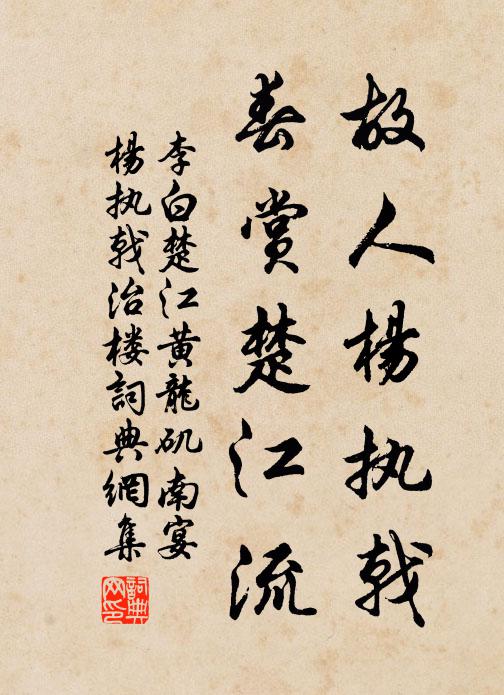 故人楊执戟
春赏楚江流
李白楚江黄龍矶南宴
楊执戟治楼詞典網集
詞典
网印